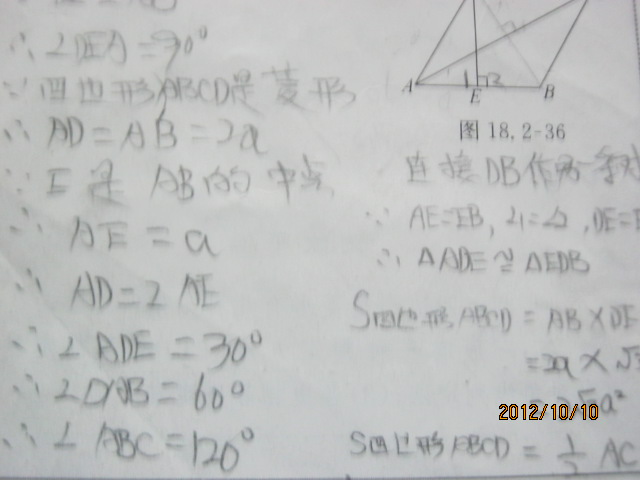 ∴ ∠DEA=90°
∵ 四边形ABCD是菱形
∴ AD=AB=2a
∵ E是 AB的中点
∴ AE=a
∴ AD=2AE
∴ ∠ADE=30°
∴ ∠DAB=60°
∴ ∠ABC=120°
A
1
2
E
B
图 18.2-36
连接DB作
∵ AE=EB, ∠1=∠2, DE=
∴ △ADE≌△EDB
S四边形ABCD=AB×DE
=2a×√3
a²
2012/10/10
S四边形ABCD=1/2 AC